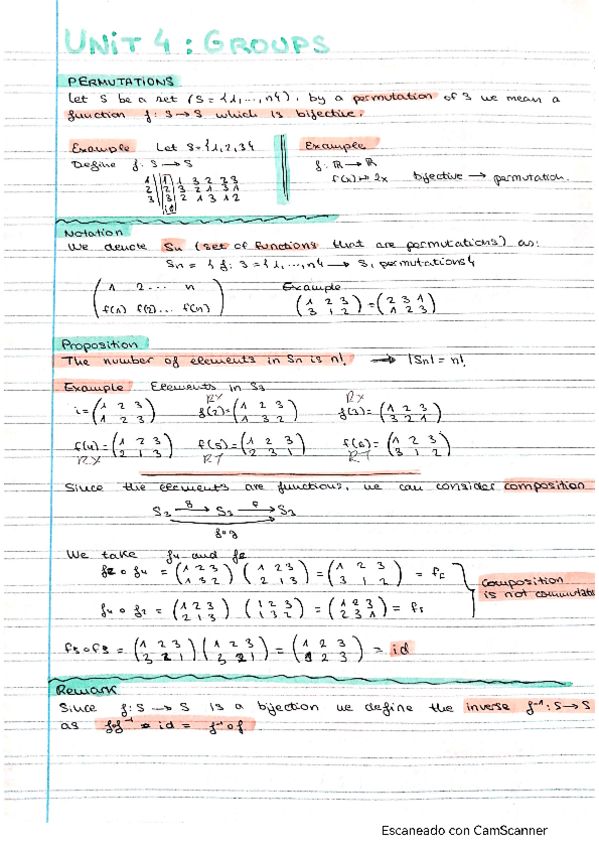 UNIT 4 : GROUPS
PERMUTATIONS
Let S be a set (S = {1,...,n}), by a permutation of S we mean a
function f: S → S which is bijective.
Example Let S={1,2,3}
Define f: S → S
1 | 1 1 3 2 2 3
2 | 2 3 2 1 3 1
3 | 3 2 1 3 1 2
id
Example
f: ℝ → ℝ
f(x) → 2x bijective → permutation.
Notation
We denote Sn (set of functions that are permutations) as:
Sn = { f: S = {1,...,n} → S, permutations}
( 1 2 ... n )
( f(1) f(2) ... f(n) )
Example
(1 2 3) = (2 3 1)
(3 1 2) (1 2 3)
Proposition
The number of elements in Sn is n! → |Sn| = n!
Example Elements in S3
RX RX
i = (1 2 3) f(2) = (1 2 3) f(3) = (1 2 3)
(1 2 3) (1 3 2) (3 2 1)
f(4) = (1 2 3) f(5) = (1 2 3) f(6) = (1 2 3)
(2 1 3) (2 3 1) (3 1 2)
RX RT RT
Since the elements are functions, we can consider composition
S3 → S3 → S3
f∘g
We take f4 and f2
f2 ∘ f4 = (1 2 3) (1 2 3) = (1 2 3) = f6
(1 3 2) (2 1 3) (3 1 2)
f4 ∘ f2 = (1 2 3) (1 2 3) = (1 2 3) = f5
(2 1 3) (1 3 2) (2 3 1)
composition
is not commutativ
f3∘f3 = (1 2 3) (1 2 3) = (1 2 3) = id
(3 2 1) (3 2 1) (1 2 3)
Remark
Since f: S → S is a bijection we define the inverse f⁻¹: S → S
as f∘f⁻¹ = id = f⁻¹∘f.
Escaneado con CamScanner